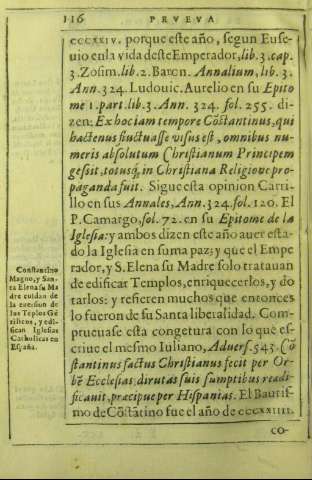 116 PRVEVA
ccccxxiv. porque este año, segun Euse-
uio en la vida deste Emperador, lib. 3. cap.
3. Zosim. lib. 2. Baron. Annalium, lib. 3.
Ann. 324. Ludouic. Aurelio en su Epito
me 1. part. lib. 3. Ann. 324. fol. 255. di-
zen: Ex hoc iam tempore Cõstantinus, qui
hactenus fluctuasse visus est, omnibus nu-
meris absolutum Christianum Principem
gessit, totusq́; in Christiana Religione pro-
paganda fuit. Sigue esta opinion Carri-
llo en sus Annales, Ann. 324. fol. 120. El
P. Camargo, fol. 72. en su Epitome de la
Iglesia: y ambos dizen este año auer esta-
do la Iglesia en suma paz; y que el Empe
rador, y S. Elena su Madre solo tratauan
de edificar Templos, enriquecerlos, y do
tarlos: y refieren muchos que entonces
lo fueron de su Santa liberalidad. Com-
prueuase esta congetura con lo que es-
criue el mesmo Iuliano, Aduers. 543. Cõ
stantinus factus Christianus fecit per Or-
bẽ Ecclesias, dirutas suis sumptibus reædi-
ficauit, præcipue per Hispanias. El Bautis-
mo de Cõstãtino fue el año de ccccxxiiii.
CO-
Constantino
Magno, y San-
ta Elena su Ma
dre cuidan de
la euersion de
los Tẽplos Gẽ
tilicos, y edi-
fican Iglesias
Catholicas en
España.